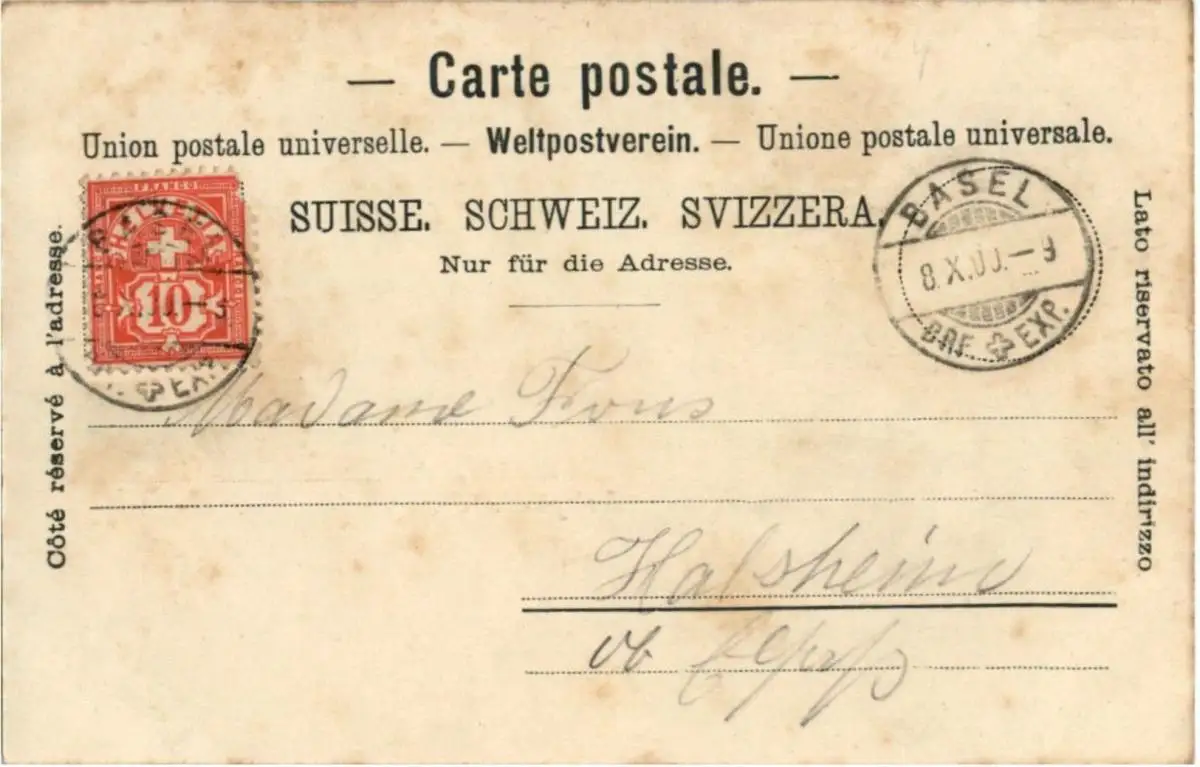 — Carte postale. —
Union postale universelle. — Weltpostverein. — Unione postale universale.
SUISSE. SCHWEIZ. SVIZZERA.
Nur für die Adresse.
Côté réservé à l'adresse.
Lato riservato all' indirizzo
FRANCO
HELVETIA
10
BASEL
8.X.00.–9
BRF EXP.
Madame Frous
Halsheim